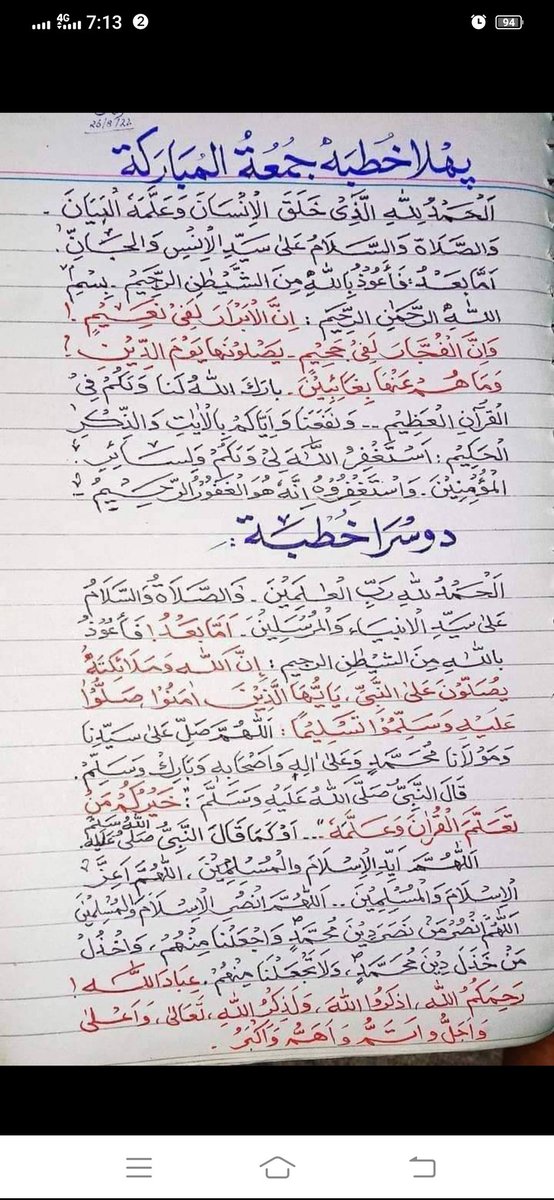 7:13
4G
2
94
26/8/22
پہلا خطبہ جُمُعَۃُ المُبَارَکَة
اَلْحَمْدُ لِلّٰهِ الَّذِیْ خَلَقَ الْاِنْسَانَ وَعَلَّمَهُ الْبَیَانَ ۔
وَالصَّلَاةُ وَالسَّلَامُ عَلٰی سَیِّدِ الْاِنْسِ وَالْجَانِّ :
اَمَّا بَعْدُ : فَاَعُوْذُ بِاللّٰهِ مِنَ الشَّیْطٰنِ الرَّجِیْمِ ۔ بِسْمِ
اللّٰهِ الرَّحْمٰنِ الرَّحِیْمِ : اِنَّ الْاَبْرَارَ لَفِیْ نَعِیْمٍ ۔ !
وَاِنَّ الْفُجَّارَ لَفِیْ جَحِیْمٍ ۔ یَصْلَوْنَهَا یَوْمَ الدِّیْنِ !
وَمَا هُمْ عَنْهَا بِغَائِبِیْنَ ۔ بَارَكَ اللّٰهُ لَنَا وَلَكُمْ فِیْ
الْقُرْآنِ الْعَظِیْمِ ۔۔ وَنَفَعَنَا وَاِیَّاكُمْ بِالْاٰیٰتِ وَالذِّكْرِ
الْحَكِیْمِ : اَسْتَغْفِرُ اللّٰهَ لِیْ وَلَكُمْ وَلِسَائِرِ :
الْمُؤْمِنِیْنَ ۔ وَاسْتَغْفِرُوْهُ اِنَّهٗ هُوَ الْغَفُوْرُ الرَّحِیْمُ ۔
دوسرا خطبة :
اَلْحَمْدُ لِلّٰهِ رَبِّ الْعٰلَمِیْنَ ۔ وَالصَّلَاةُ وَالسَّلَامُ
عَلٰی سَیِّدِ الْاَنْبِیَاءِ وَالْمُرْسَلِیْنَ ۔ اَمَّا بَعْدُ ! فَاَعُوْذُ
بِاللّٰهِ مِنَ الشَّیْطٰنِ الرَّجِیْمِ : اِنَّ اللّٰهَ وَمَلَائِكَتَهٗ
یُصَلُّوْنَ عَلَی النَّبِیِّ ، یٰاَیُّهَا الَّذِیْنَ اٰمَنُوْا صَلُّوْا
عَلَیْهِ وَسَلِّمُوْا تَسْلِیْمًا : اَللّٰهُمَّ صَلِّ عَلٰی سَیِّدِنَا
وَمَوْلَانَا مُحَمَّدٍ وَعَلٰی اٰلِهٖ وَاَصْحَابِهٖ وَبَارِكْ وَسَلِّمْ .
قَالَ النَّبِیُّ صَلَّی اللّٰهُ عَلَیْهِ وَسَلَّمَ : "خَیْرُكُمْ مَنْ
تَعَلَّمَ الْقُرْاٰنَ وَعَلَّمَهٗ" ... اَوْ كَمَا قَالَ النَّبِیُّ صَلَّی اللّٰهُ عَلَیْهِ وَسَلَّمَ
اَللّٰهُمَّ اَیِّدِ الْاِسْلَامَ وَالْمُسْلِمِیْنَ ، اَللّٰهُمَّ اَعِزَّ
الْاِسْلَامَ وَالْمُسْلِمِیْنَ .. اَللّٰهُمَّ انْصُرِ الْاِسْلَامَ وَالْمُسْلِمِیْنَ
اَللّٰهُمَّ انْصُرْ مَنْ نَصَرَ دِیْنَ مُحَمَّدٍ ؐ وَاجْعَلْنَا مِنْهُمْ ، وَاخْذُلْ
مَنْ خَذَلَ دِیْنَ مُحَمَّدٍ ؐ ، وَلَا تَجْعَلْنَا مِنْهُمْ . عِبَادَ اللّٰهِ !
رَحِمَكُمُ اللّٰهُ ، اُذْكُرُوا اللّٰهَ ، وَلَذِكْرُ اللّٰهِ ، تَعَالٰی ، وَاَعْلٰی
وَاَجَلُّ وَاَتَمُّ وَاَهَمُّ وَاَكْبَرُ .